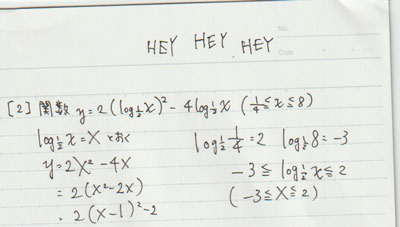 HEY HEY HEY
No.
Date
[2] 関数 y=2(log½x)²-4log½x (¼≦x≦8)
log½x=Xとおく
y=2X²-4X
=2(X²-2X)
=2(X-1)²-2
log½¼=2 log½8=-3
-3≦log½x≦2
(-3≦X≦2)